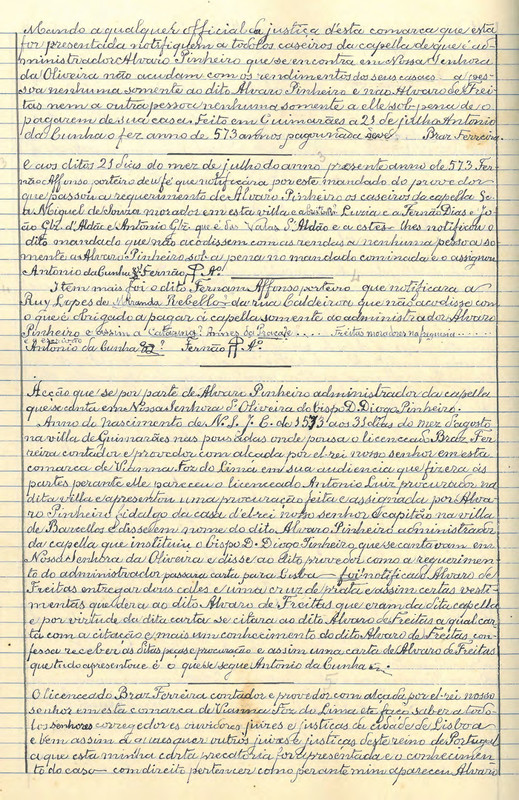 Mando a qualquer official da justiça d'esta comarca que esta
for presentada notifiquem a todolos caseiros da capella de que é ad-
ministrador Alvaro Pinheiro que se encontra em Nossa Senhora
da Oliveira não acudam com os rendimentos dos seus casaes a pes-
soa nenhuma somente ao dito Alvaro Pinheiro e não Alvaro de Frei-
tas nem a outra pessoa nenhuma somente a elle sob pena de o
pagarem de sua casa. Feito em Guimarães a 21 de julho Antonio
da Cunha o fez anno de 573 annos pagou nada Braz Ferreira.
E aos ditos 21 dias do mez de julho do anno presente anno de 573 Fer-
não Affonso porteiro deu fé que notificára por este mandado do provedor
que passou a requerimento de Alvaro Pinheiro os caseiros da capella
a Miguel de Souza morados em esta villa e a Luzia e a Fernão Dias e Jo-
ão Glz. d'Aldão e Antonio Glz. que é das Valas S. Aldão e a estes lhes notificou o
dito mandado que não acodissem com as rendas a nenhuma pessoa so-
mente a Alvaro Pinheiro sob a pena no mandado cominada e o assignou
Antonio da Cunha Fernão Aº.
Item mais foi o dito Fernam Affonso porteiro que notificara a
Ruy Lopes de Miranda Rebello da rua Caldeirôa que não acodisse com
o que é obrigado a pagar á capella somente do administrador Alvaro
Pinheiro e assim a Catarina? Annes da ..... Freitas moradores na freguesia .....
Antonio da Cunha Fernão Aº.
Acção que se por parte de Alvaro Pinheiro administrador da capella
que se canta em Nossa Senhora d'Oliveira do bispo D. Diogo Pinheiro.
Anno do nascimento de N. S. J. C. de 1573 aos 31 dias do mez d'agosto
na villa de Guimarães nas pousadas onde pousa o licenceado Braz Fer-
reira contador e provedor com alçada por el-rei nosso senhor em esta
comarca de Vianna Foz do Lima em sua audiencia que fizera ás
partes perante elle pareceu o licenceado Antonio Luiz procurador na
dita villa e apresentou uma procuração feita e assignada por Alva-
ro Pinheiro fidalgo da casa d'el-rei nosso senhor e capitão na villa
de Barcellos e disse em nome do dito Alvaro Pinheiro administrador
da capella que instituiu o bispo D. Diogo Pinheiro que se cantavam em
Nossa Senhora da Oliveira e disse ao dito provedor como a requerimen-
to do administrador passara carta para Lisboa foi notificado Alvaro de
Freitas entregar dous calices e uma cruz de prata e assim certas vesti-
mentas que dera ao dito Alvaro de Freitas que eram da dita capella
e por virtude da dita carta se citara ao dito Alvaro de Freitas a qual car-
ta com a citação e mais um conhecimento do dito Alvaro de Freitas, con-
fessa receber as ditas peças e procuração e assim uma carta de Alvaro de Freitas
que tudo apresentou e é o que se segue Antonio da Cunha
O licenceado Braz Ferreira contador e provedor com alçada por el-rei nosso
senhor em esta comarca de Vianna Foz do Lima etc. faço saber a todo-
los senhores corregedores ouvidores juizes e justiças da cidade de Lisboa
e bem assim a quaesquer outros juizes e justiças deste reino de Portugal
a que esta minha carta precatoria for apresentada e o conhecimen-
to do caso com direito pertencer como perante mim apareceu Alvaro